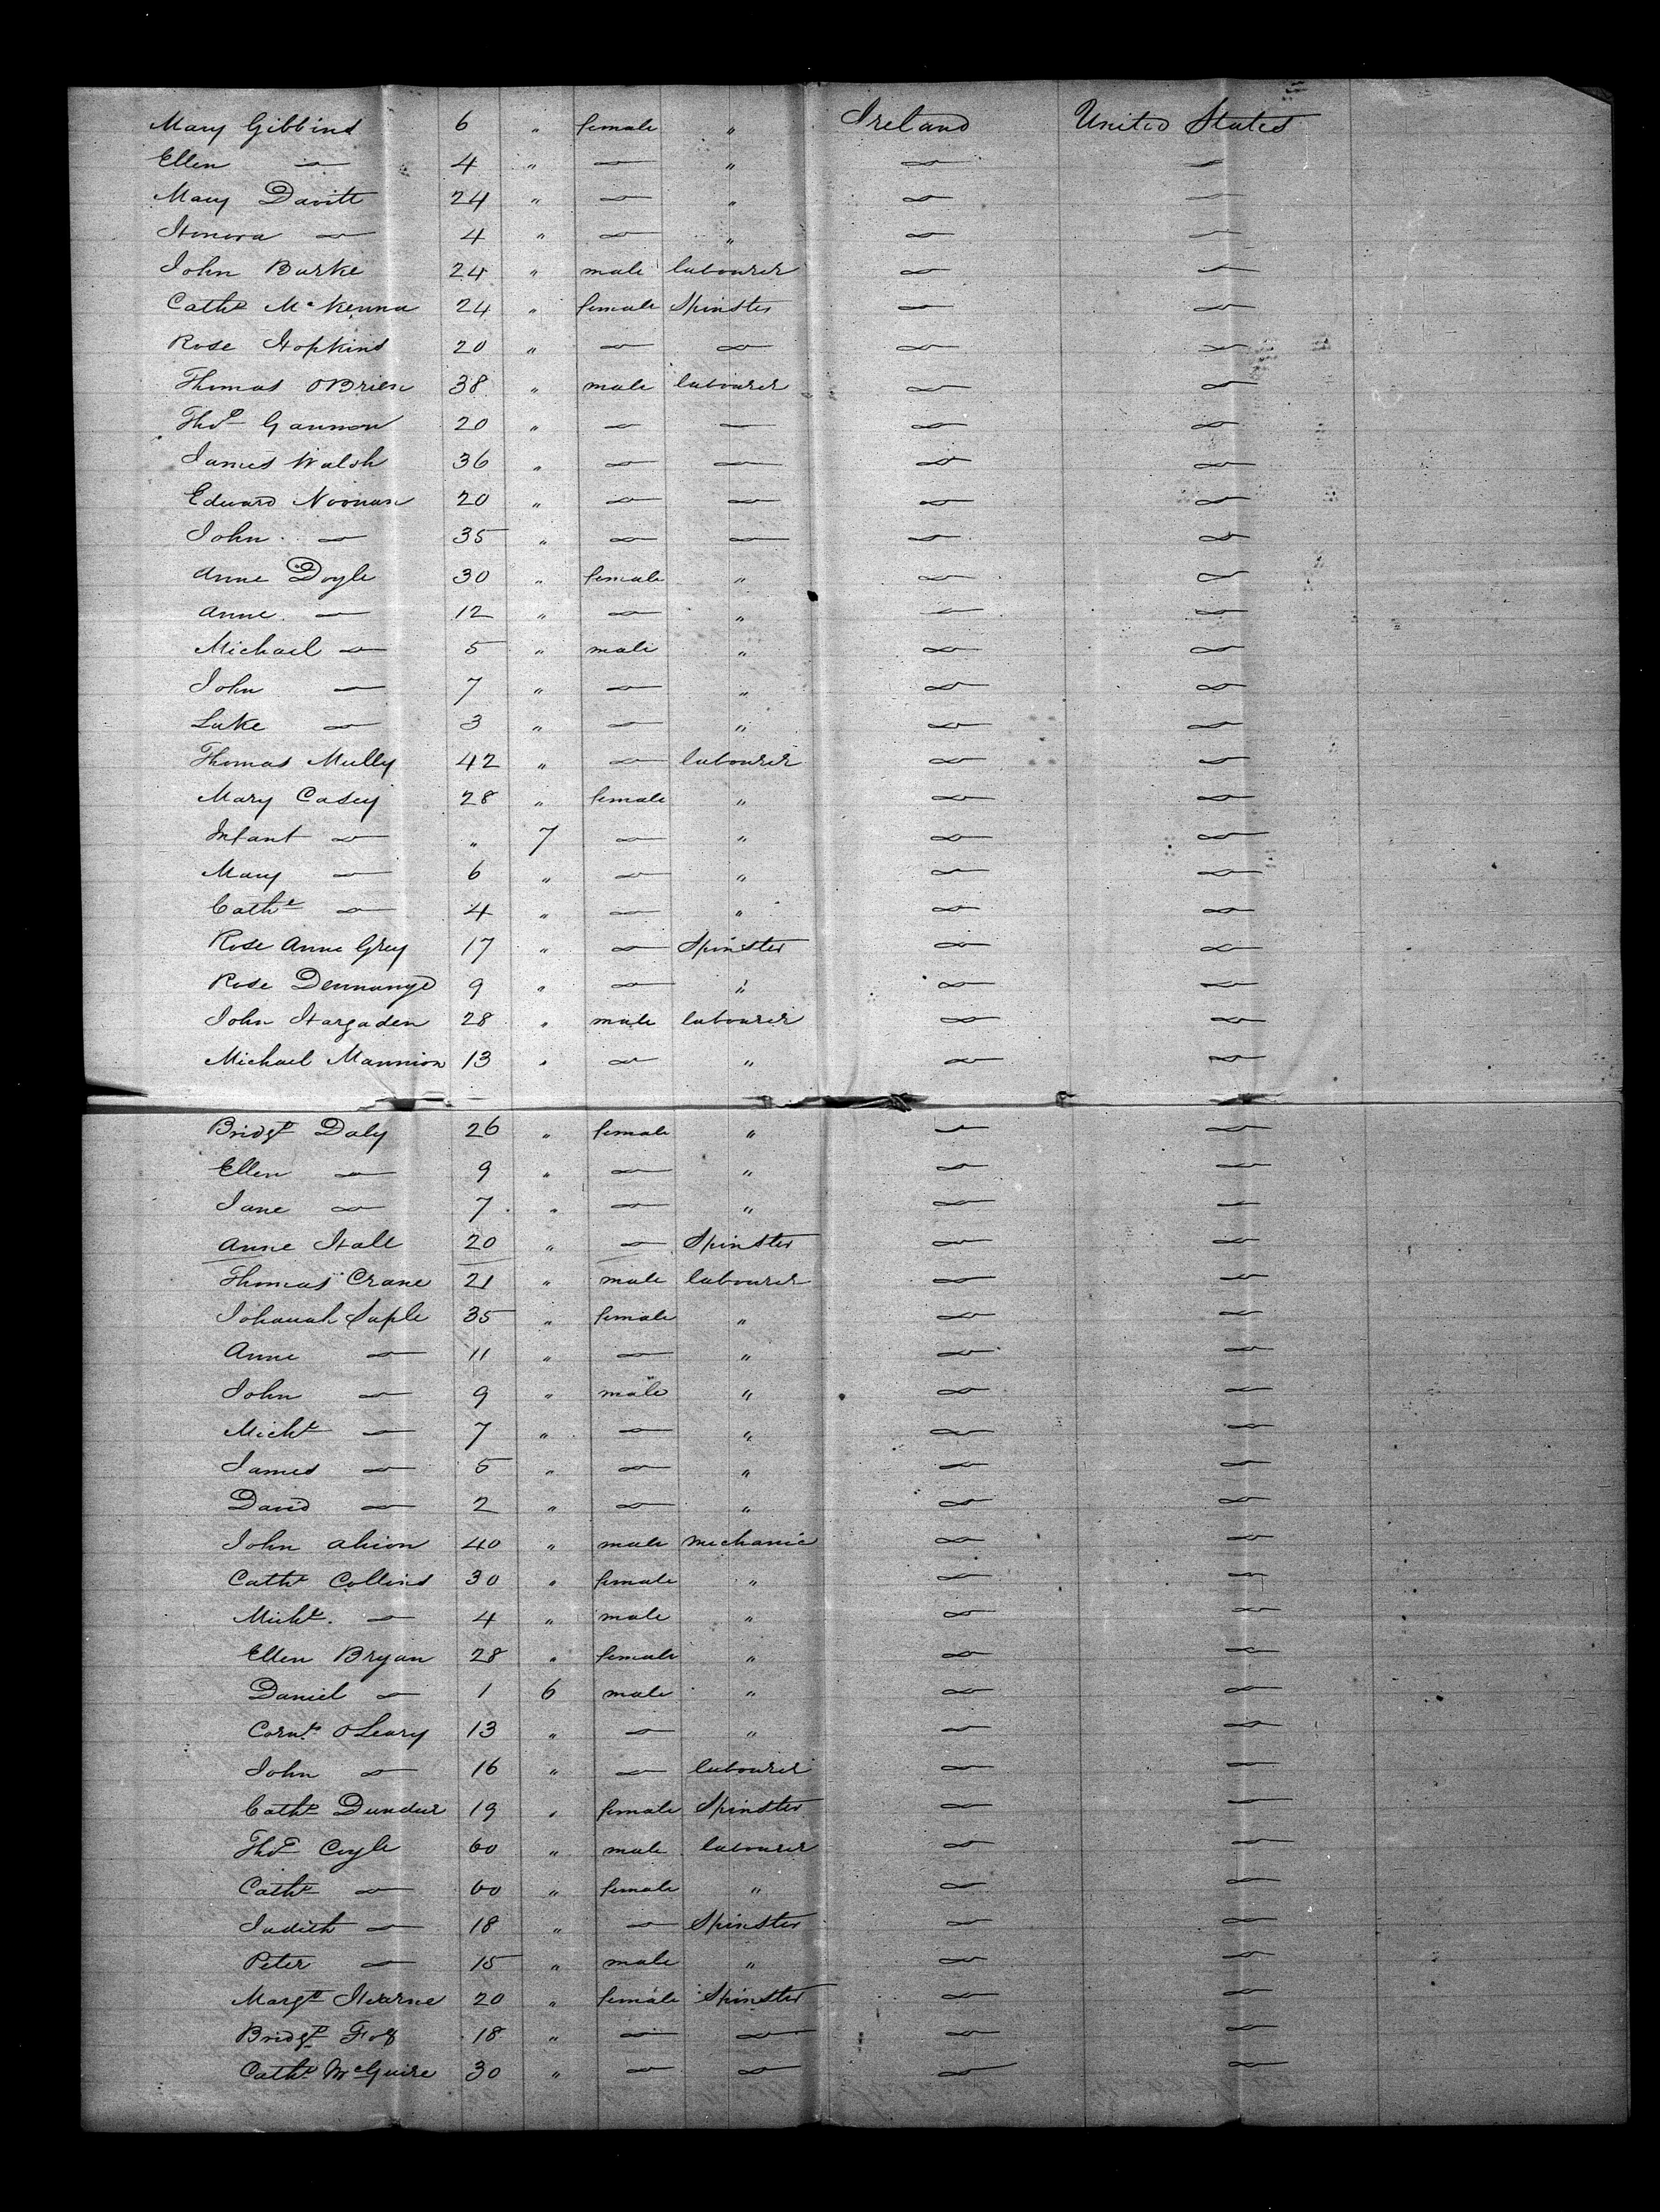 Mary Gibbins 6 " female " Ireland United States
Ellen — 4 " — " — —
Mary Davitt 24 " — " — —
Honora — 4 " — " — —
John Burke 24 " male labourer — —
Cathe McKenna 24 " female Spinster — —
Rose Hopkins 20 " — — — —
Thomas OBrien 38 " male labourer — —
Thos Gannon 20 " — — — —
James Walsh 36 " — — — —
Edward Noonan 20 " — — — —
John — 35 " — — — —
Anne Doyle 30 " female " — —
Anne — 12 " — " — —
Michael — 5 " male " — —
John — 7 " — " — —
Luke — 3 " — " — —
Thomas Mully 42 " — labourer — —
Mary Casey 28 " female " — —
Infant — " 7 — " — —
Mary — 6 " — " — —
Cathe — 4 " — " — —
Rose Anne Grey 17 " — Spinster — —
Rose 9 " — " — —
John Hargaden 28 " male labourer — —
Michael Mannion 13 " — " — —
Bridgt Daly 26 " female " — —
Ellen — 9 " — " — —
Jane — 7 " — " — —
Anne Hall 20 " — Spinster — —
Thomas Crane 21 " male labourer — —
Johanah Suple 35 " female " — —
Anne — 11 " — " — —
John — 9 " male " — —
Michl — 7 " — " — —
James — 5 " — " — —
David — 2 " — " — —
John Ahion 40 " male mechanic — —
Cathe Collins 30 " female " — —
Michl — 4 " male " — —
Ellen Bryan 28 " female " — —
Daniel — 1 6 male " — —
Corns OLeary 13 " — " — —
John — 16 " — labourer — —
Cathe 19 " female Spinster — —
Thos Coyle 60 " male labourer — —
Cathe — 60 " female " — —
Judith — 18 " — Spinster — —
Peter — 15 " male " — —
Margt Hearne 20 " female Spinster — —
Bridgt Foy 18 " — — — —
Cathe McGuire 30 " — — — —